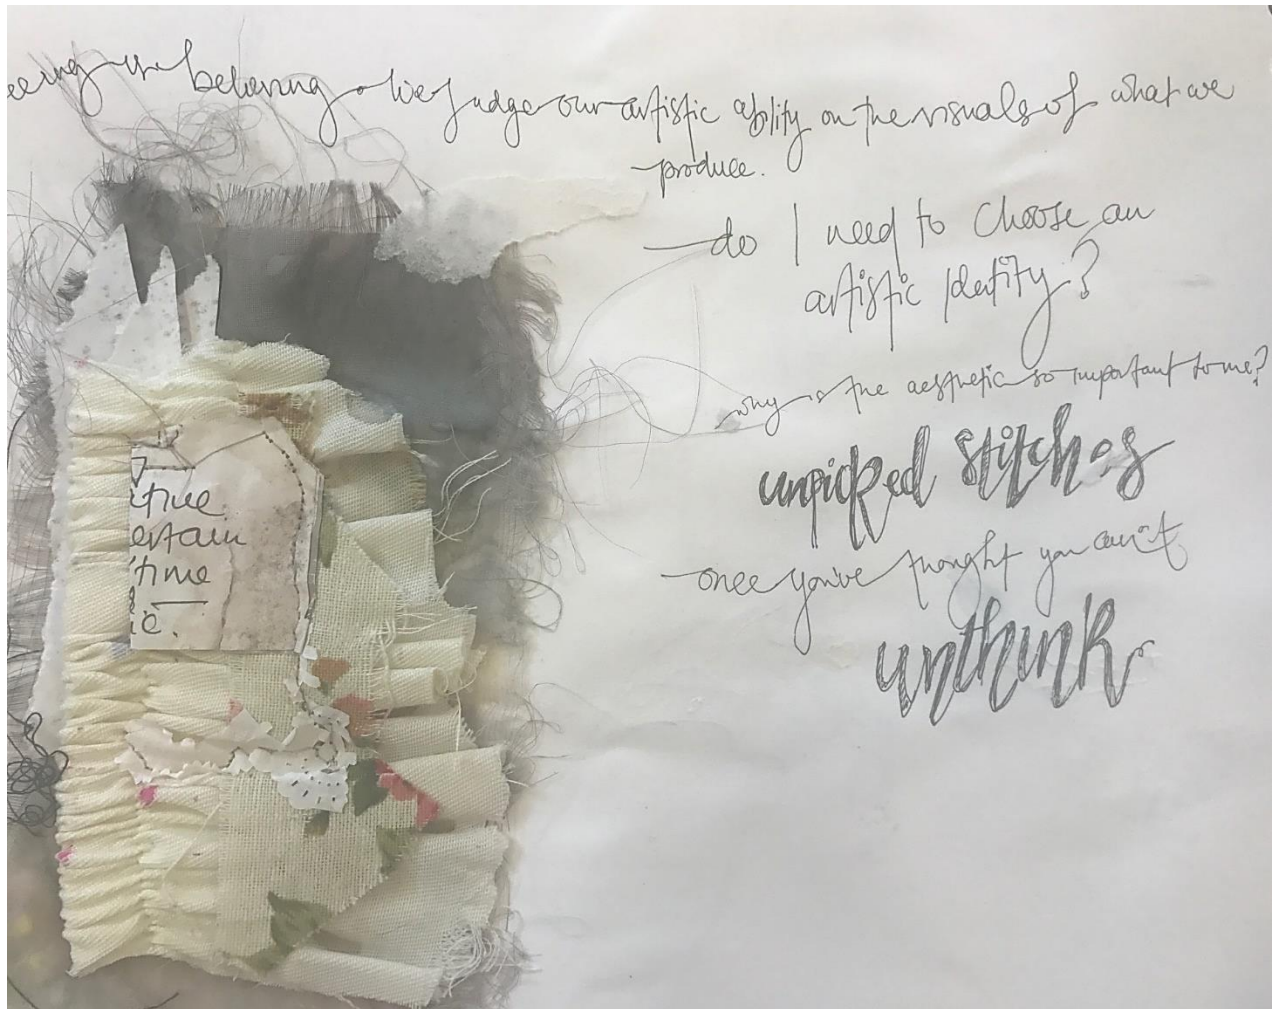 eeing is believing. We judge our artistic ability on the visuals of what we
produce.
do I need to choose an
artistic identity?
why is the aesthetic so important to me?
unpicked stitches
once you've thought you can't
unthink
tive
ertain
time
ie.